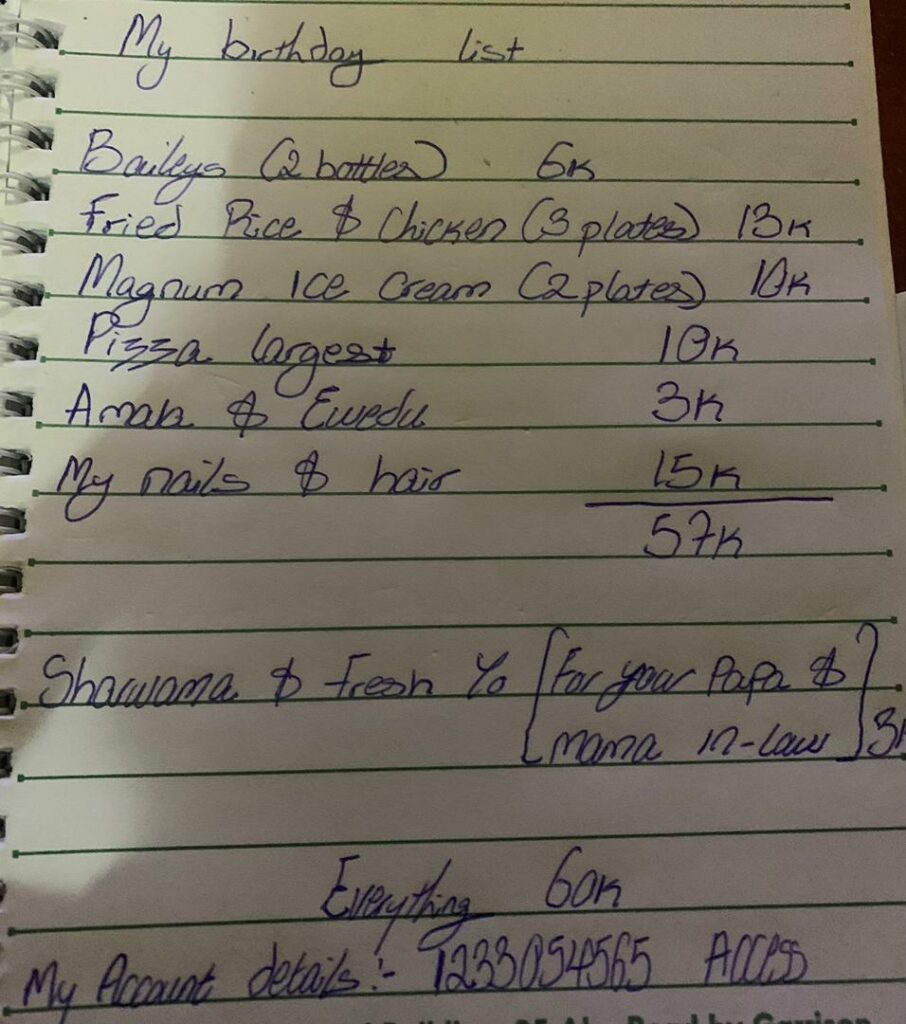 My birthday list
Baileys (2 bottles) 6k
Fried Rice & Chicken (3 plates) 13k
Magnum Ice Cream (2 plates) 10k
Pizza largest 10k
Amala & Ewedu 3k
My nails & hair 15k
57k
Shawama & Fresh Yo [For your Papa &
mama in-law] 3k
Everything 60k
My Account details:- 1233054565 Access